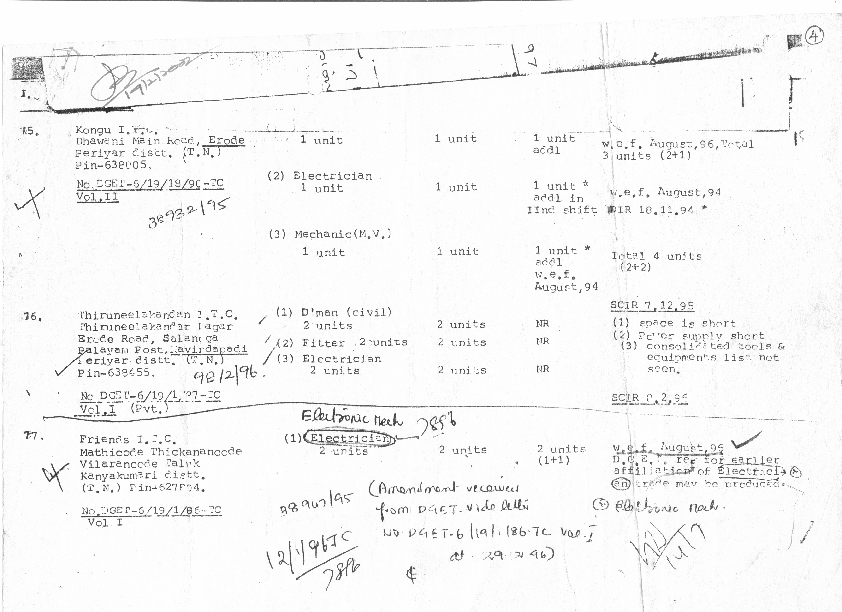 4
19/2/2002
I.
15.
Kongu I.T.C.
Bhawani Main Road, Erode
Periyar distt. (T.N.)
Pin-638005.
1 unit 1 unit 1 unit addl
w.e.f. August,96,Total
3 units (2+1)
No.DGET-6/19/18/90-TC
Vol.II
38932/95
(2) Electrician
1 unit 1 unit 1 unit *
addl in
IInd shift
w.e.f. August,94
DIR 18.11.94 *
(3) Mechanic(M.V.)
1 unit 1 unit 1 unit *
addl
w.e.f.
August,94
Total 4 units
(2+2)
SCIR 7.12.95
76.
Thiruneelakandan I.T.C.
Thiruneelakandar Nagar
Erode Road,
Palayam Post,
Periyar distt. (T.N.)
Pin-638655.
982/96.
No DGET-6/19/1
Vol.I (Pvt.)
(1) D'man (civil)
2 units 2 units NR
(2) Fitter 2 units 2 units NR
(3) Electrician
2 units 2 units NR
(1) space is short
(2) Power supply short
(3) consolidated tools &
equipments list not
seen.
SCIR
77.
Friends I.T.C.
Mathicode Thickanancode
Vilavancode Taluk
Kanyakumari distt.
(T.N.)
No.DGET-6/19/1/86-TC
Vol I
Electronic Mech
(1) Electrician
2 units 2 units 2 units
(1+1)
w.e.f. August,95
D.G.E.T. ref for earlier
affiliation of Electrici
an trade may be produced.
Electronic Mech.
(Amendment received
from DGET. vide letter
NO DGET-6/19/1/86-TC Vol-I